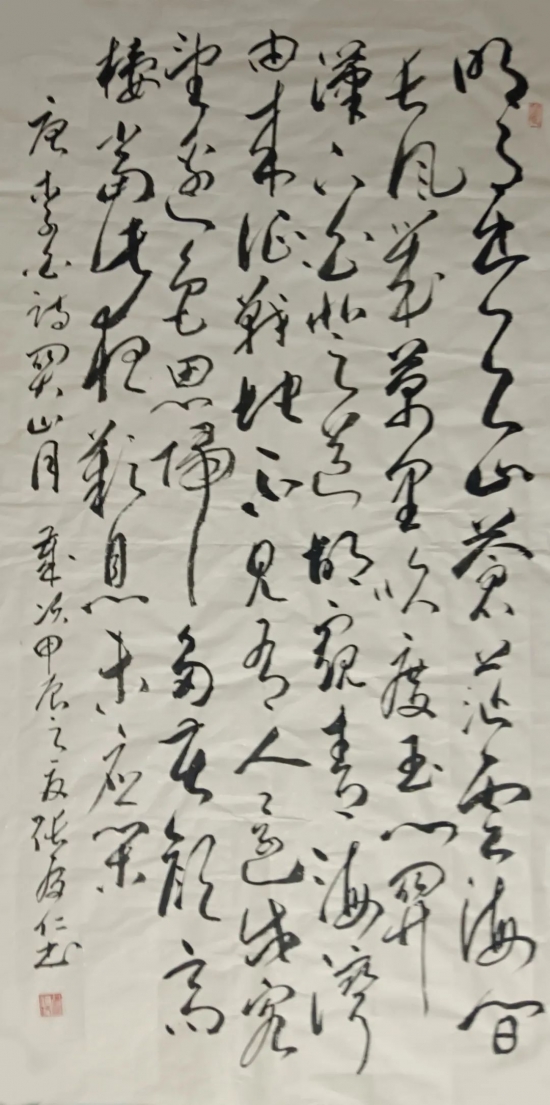 明月出天山蒼茫雲海間
長風幾萬里吹度玉門關
漢下白登道胡窺青海灣
由來征戰地不見有人還戍客
望邊色思歸多苦顏高
樓當此夜歎息未應閑
唐李白詩關山月 歲次甲辰之夏張仁書